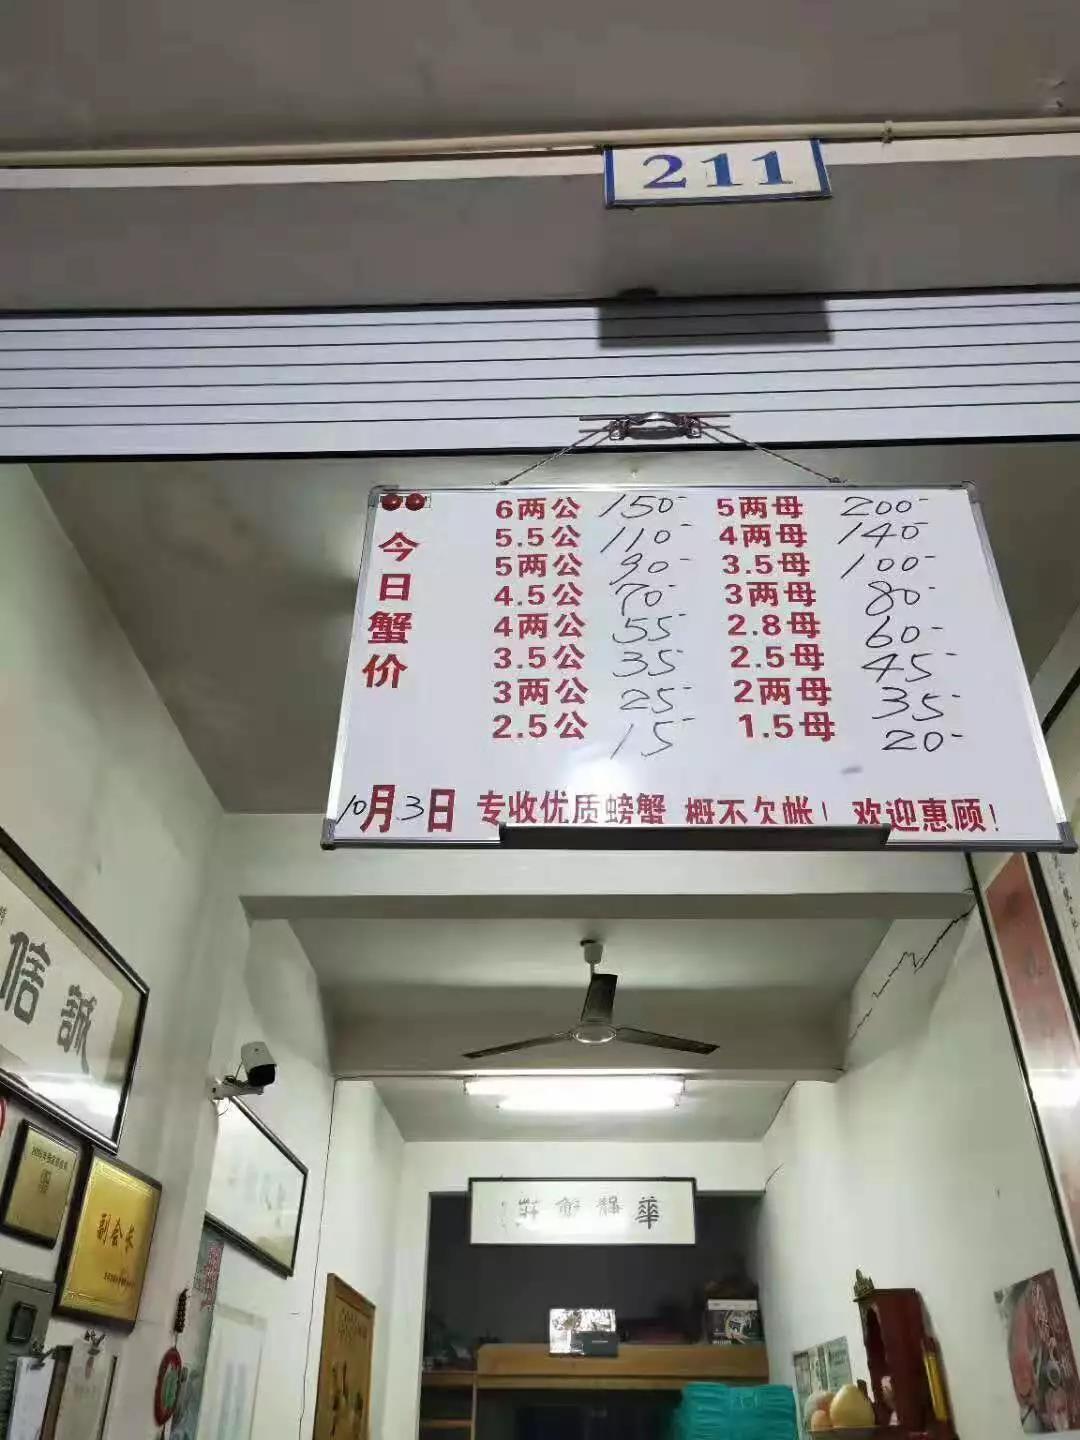 211
今日蟹价
6两公 150- 5两母 200-
5.5公 110- 4两母 140-
5两公 90- 3.5母 100-
4.5公 70- 3两母 80-
4两公 55- 2.8母 60-
3.5公 35- 2.5母 45-
3两公 25- 2两母 35-
2.5公 15- 1.5母 20-
10月3日 专收优质螃蟹 概不欠帐！欢迎惠顾！
诚信
副会长
華靜蟹莊